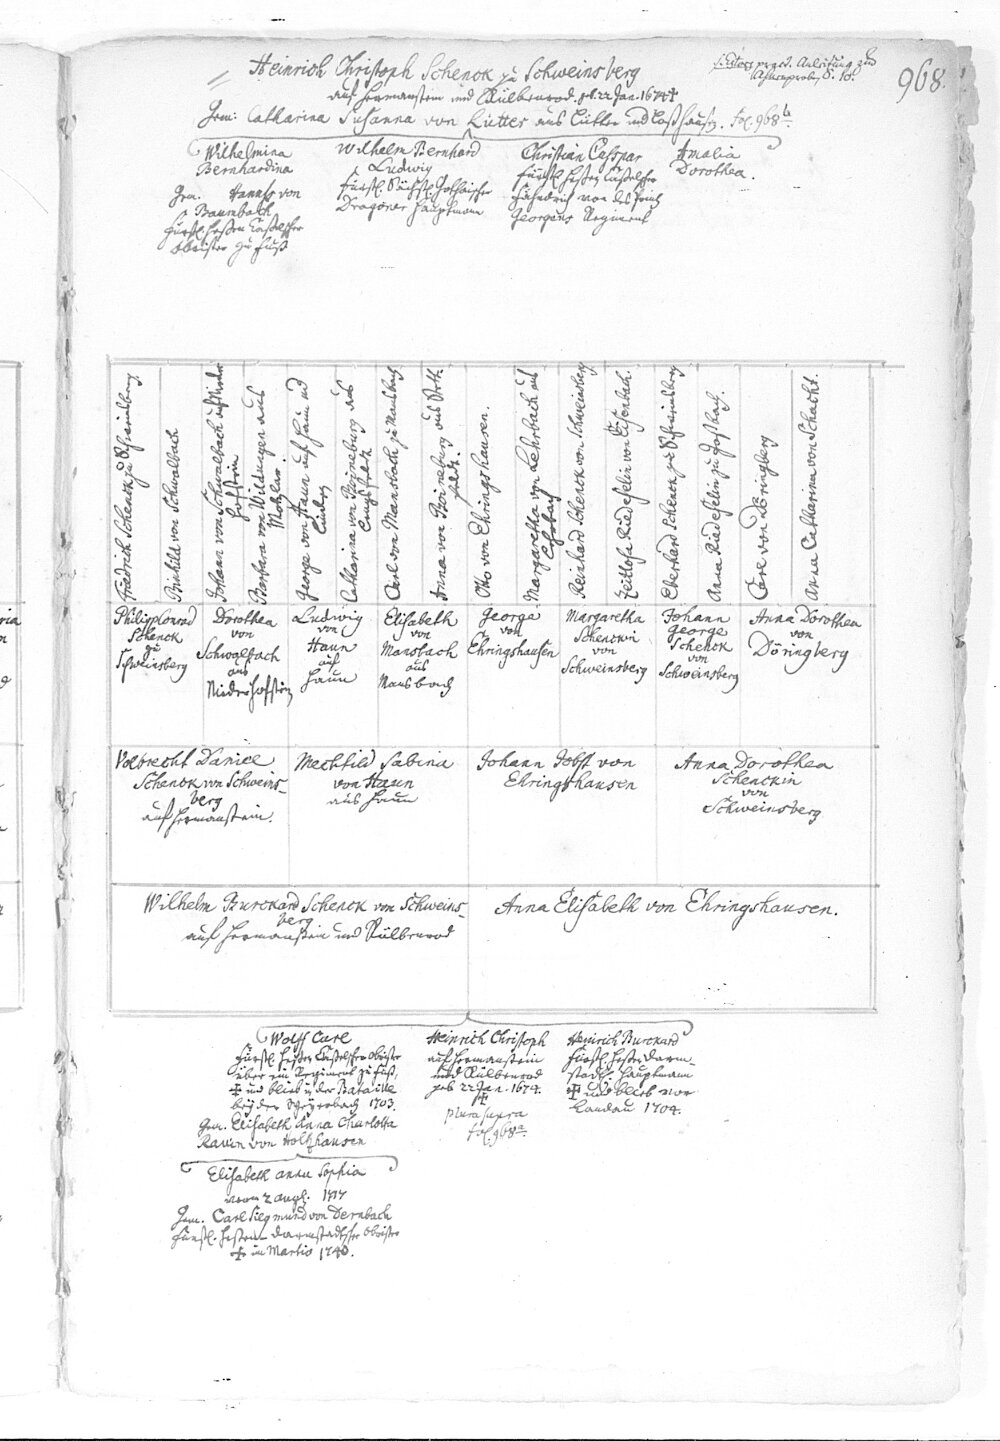 968.
Heinrich Christoph Schenck zu Schweinsberg
auf Hermanstein und Rülbenrod. geb. 22 Jan. 1674 ✝
Gem: Catharina Susanna von Lütter aus Lütter und Loßhausen. Fol. 968 b
Wilhelmina
Bernhardina
Gem. Hannß von
Baumbach
Fürstl. Hessen Casselscher
Obrister zu Fuß
Wilhelm Bernhard
Ludwig
Fürstl. Sächsl. Gothaischer
Dragoner Hauptmann
Christian Casspar
Fürstl. Hessen Casselscher
Fähndrich von des Printz
Georgens Regiment
Amalia
Dorothea.
Friedrich Schenck zu Schweinsberg
von Schwalbach
Johann von Schwalbach auf Nieder
Hofstein
Barbara von Wildungen aus
George von Haun auf Haun und
Catharina von Boineburg aus
Lengsfeldt
Carl von Mansbach zu Mansbach
Anna von Boineburg aus
Otto von Ehringshausen.
Margaretha von Lehrbach aus
Lehrbach
Reinhard Schenck von Schweinsberg
Riedeselin von Eisenbach.
Eberhard Schenck zu Schweinsberg
Anna Riedeselin zu
Carl von Döringberg
Anna Catharina von Schacht.
Philipp Conrad
Schenck
zu
Schweinsberg
Dorothea
von
Schwalbach
aus
Niederhofstein
Ludwig
von
Haun
auf
Haun
Elisabeth
von
Mansbach
aus
Mansbach
George
von
Ehringshausen
Margaretha
Schenckin
von
Schweinsberg
Johann
George
Schenck
von
Schweinsberg
Anna Dorothea
von
Döringberg
Volbrecht Daniel
Schenck von Schweins-
berg
auf Hermanstein.
Mechtild Sabina
von Haun
aus Haun
Johann Jobst von
Ehringshausen
Anna Dorothea
Schenckin
von
Schweinsberg
Wilhelm Burckard Schenck von Schweins-
berg
auf Hermanstein und Rülbenrod
Anna Elisabeth von Ehringshausen.
Wolff Carl
Fürstl. Hessen Casselscher Obrister
über ein Regiment zu Fuß,
✝ und blieb in der Bataille
bey der Speyerbach 1703.
Gem. Elisabeth Anna Charlotta
Rauin von Holtzhausen
Heinrich Christoph
auf Hermanstein
und Rülbenrod
geb 22 Jan. 1674.
✝
plura supra
fol. 968 a
Heinrich Burckard
Fürstl. Hessen Darm-
städtl. Hauptmann
✝ und blieb vor
Landau 1704.
Elisabeth Anna Sophia
Gem. Carl Siegmund von Dernbach
Fürstl. Hessen Darmstadtscher Obrister
✝ im Martio 1740.